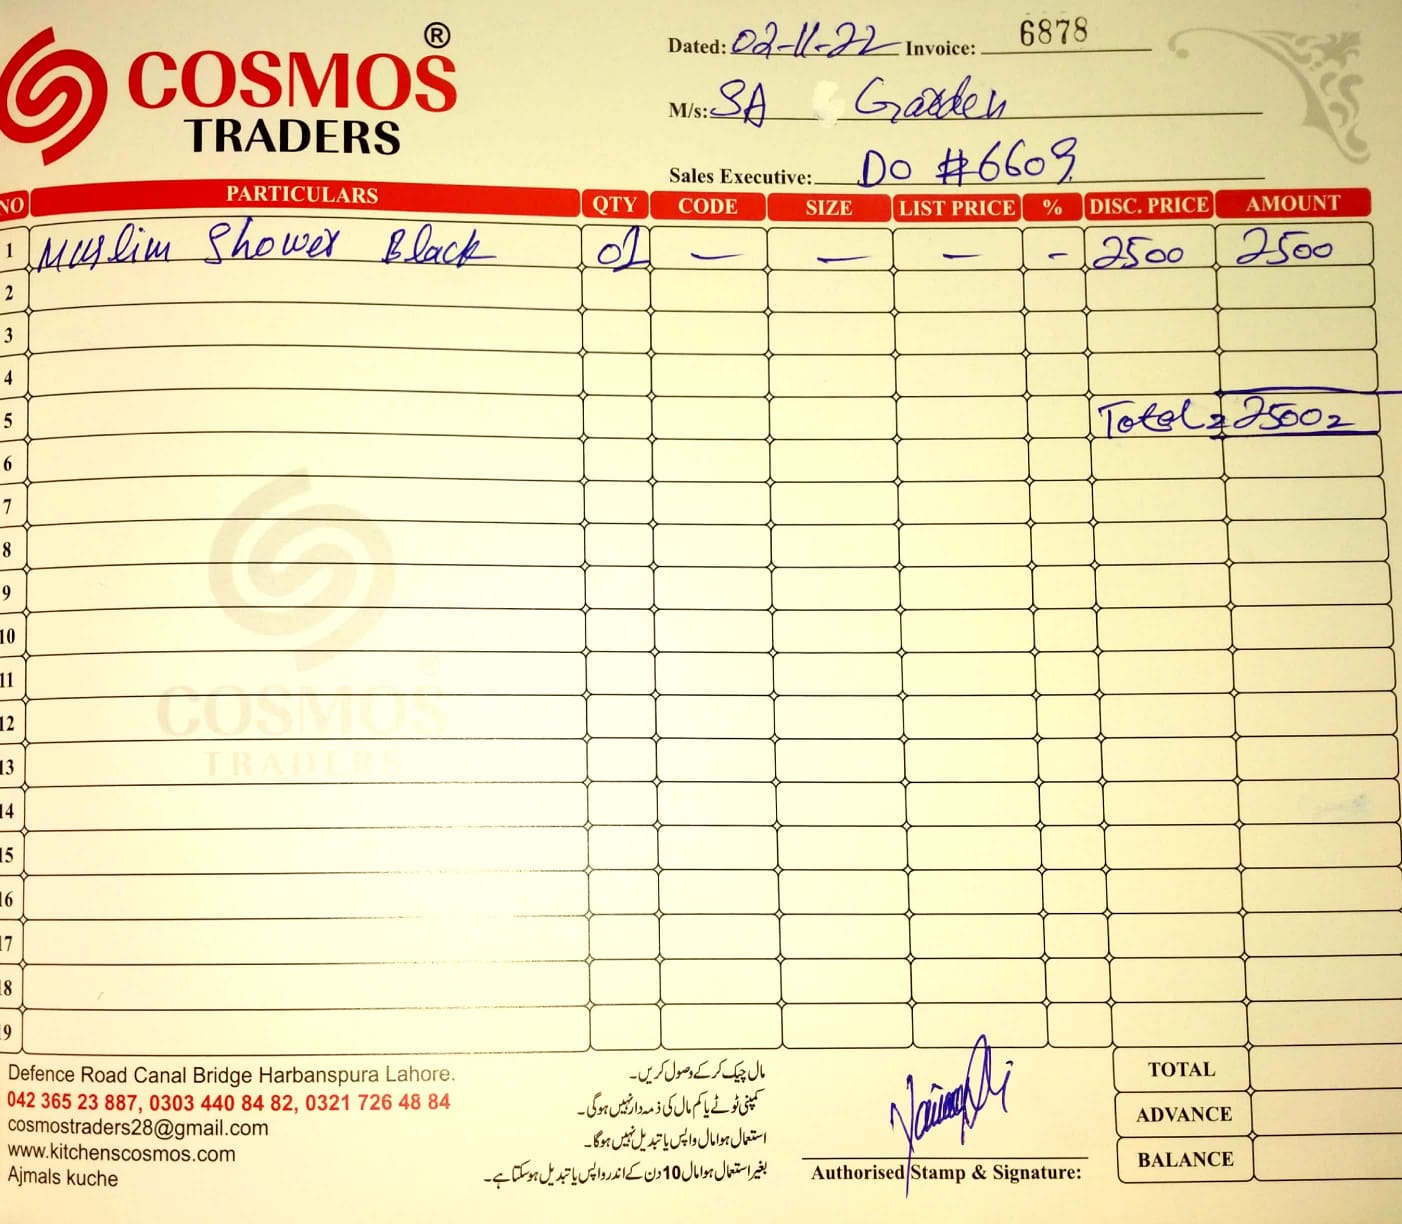 COSMOS ®
TRADERS
Dated: 02-11-22 Invoice: 6878
M/s: SA Garden
Sales Executive: DO #6609
NO PARTICULARS QTY CODE SIZE LIST PRICE % DISC. PRICE AMOUNT
1 Muslim Shower Black 01 — — — - 2500 2500
2
3
4
5 Total = 2500=
6
7
8
9
10
11
12
13
14
15
16
17
18
19
COSMOS
TRADERS
Defence Road Canal Bridge Harbanspura Lahore.
042 365 23 887, 0303 440 84 82, 0321 726 48 84
cosmostraders28@gmail.com
www.kitchenscosmos.com
Ajmals kuche
مال چیک کر کے وصول کریں۔
کمپنی ٹوٹے یا کم مال کی ذمہ دار نہیں ہوگی۔
استعمال ہوا مال واپس یا تبدیل نہیں ہوگا۔
بغیر استعمال ہوا مال 10 دن کے اندر واپس یا تبدیل ہو سکتا ہے۔
Authorised Stamp & Signature:
TOTAL
ADVANCE
BALANCE